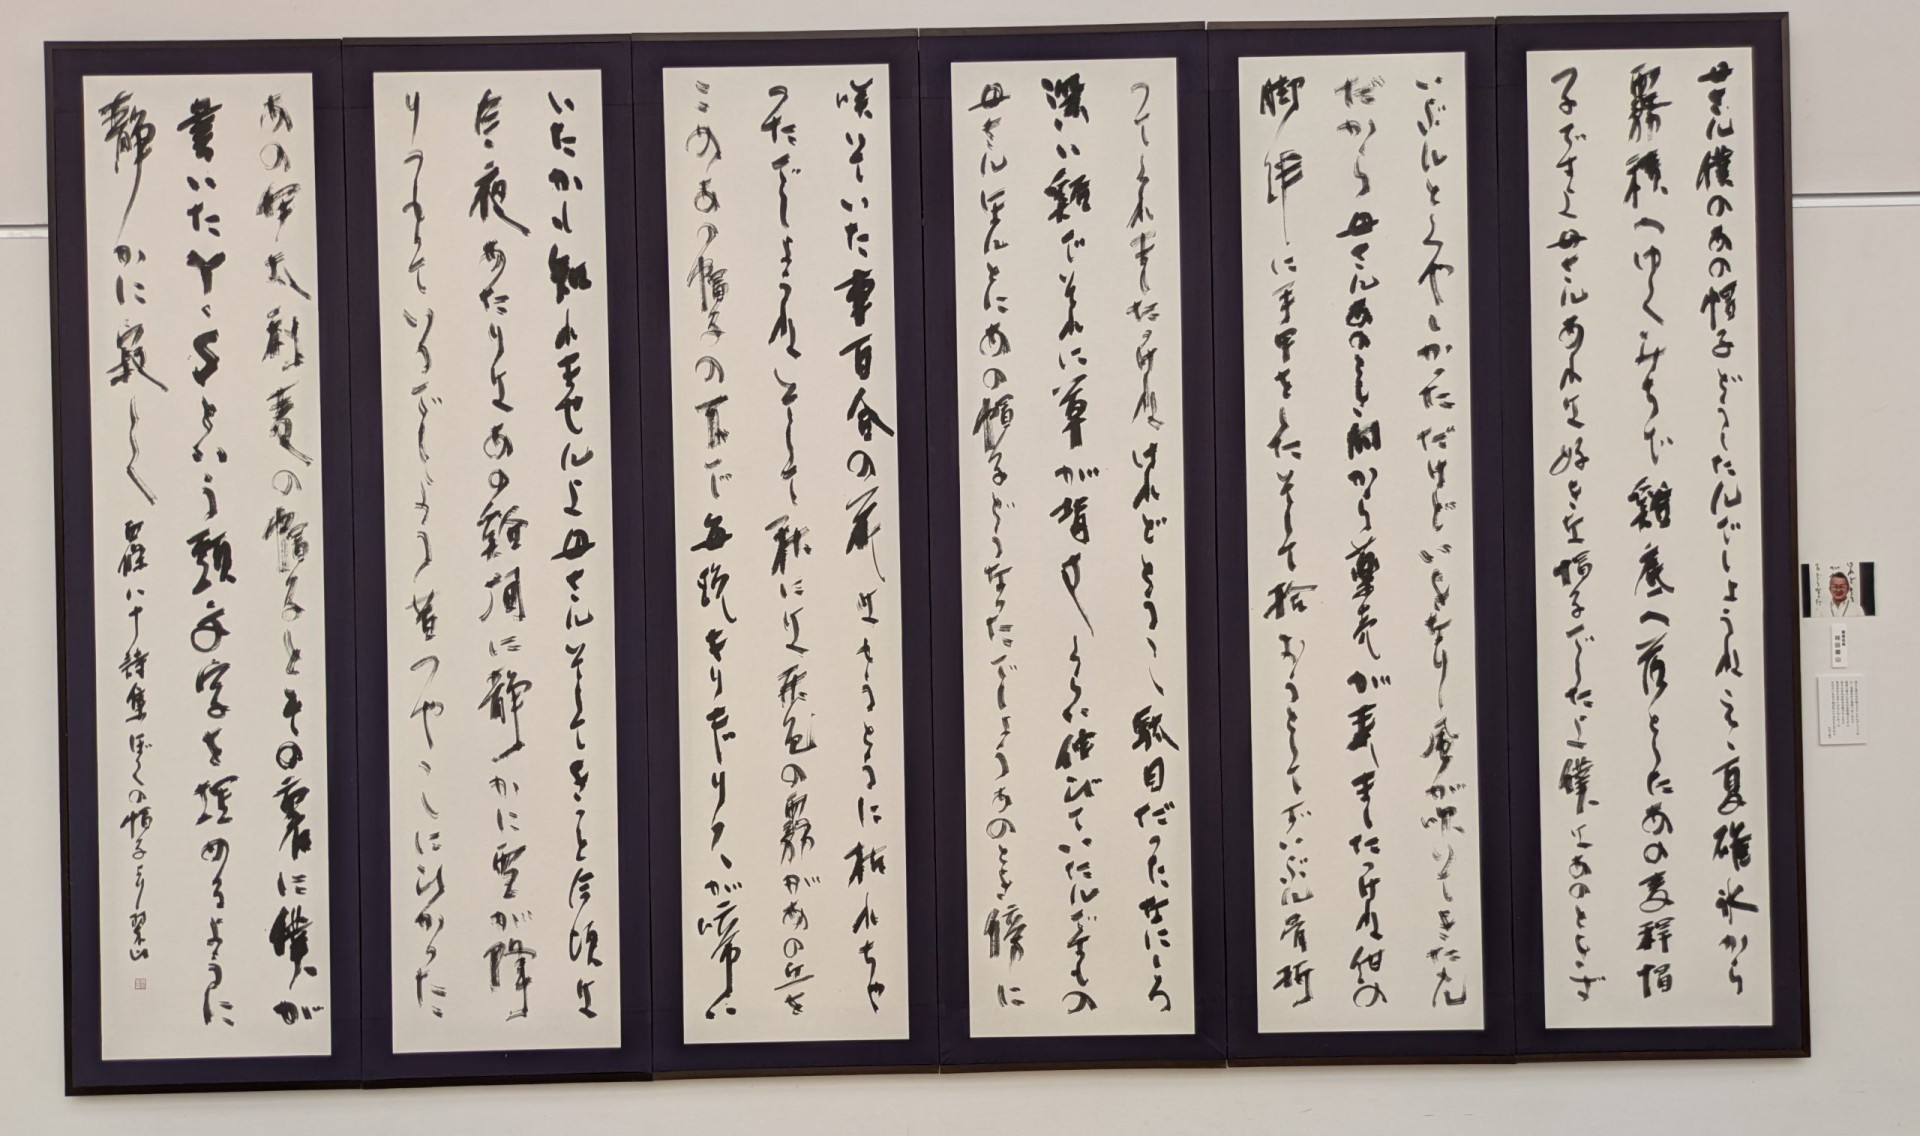 母さん僕のあの帽子どうしたんでしょうねええ、夏碓氷から
霧積へゆくみちで谿底へ落としたあの麦稈帽
子ですよ母さんあれは好きな帽子でしたよ僕はあのときず
いぶんとくやしかっただけどいきなり風が吹いてきたもん
だから母さんあのとき向から薬売が来ましたっけね紺の
脚絆に手甲をしたそして拾おうとしてずいぶん骨折
ってくれましたっけねけれどとうとう駄目だったなにしろ
深い谿でそれに草が背丈くらい伸びていたんですもの
母さんほんとにあの帽子どうなったでしょうあのとき傍に
咲いていた車百合の花はもうとうに枯れちゃ
ったでしょうねそして秋には灰色の霧があの丘を
こめあの帽子の下で毎晩きりぎりすが啼い
いたかも知れませんよ母さんそしてきっと今頃は
今夜あたりはあの谿間に静かに雪が降
りつもっているでしょう昔つややかに光った
あの伊太利麦の帽子とその裏に僕が
書いたY、Sという頭文字を埋めるように
静かに寂しく 西條八十詩集ぼくの帽子より 翠山